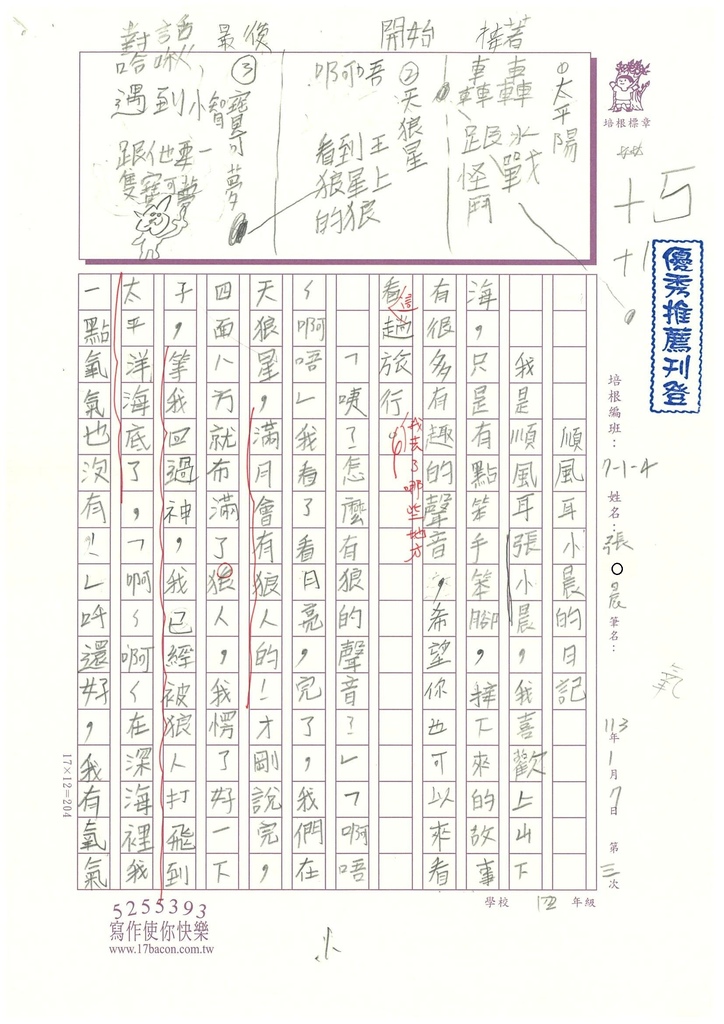 對話 最後 開始 接著
①太平陽
轟轟水戰
轉跟怪鬥
②天狼星
啊唔 看到王
狼星上
的狼
③寶可夢
哈啾,
遇到小智
跟他要一
隻寶可夢
培根標章
+5
+1
優秀推薦刊登
培根編班:7-1-4
姓名:張○晨
筆名:
氧
113年1月7日 第三次
學校 四 年級
順風耳小晨的日記
我是順風耳張小晨,我喜歡上山下
海,只是有點笨手笨腳,接下來的故事
有很多有趣的聲音,希望你也可以來看
看這趟旅行我去了哪些地方
「咦?怎麼有狼的聲音?」「啊唔
~啊唔」我看了看月亮,完了,我們在
天狼星,滿月會有狼人的!才剛說完,
四面八方就布滿了狼人,我愣了好一下
子,等我回過神,我已經被狼人打飛到
太平洋海底了,「啊~啊~在深海裡我
一點氧氣也沒有!」呼還好,我有氧氣
17×12=204
5255393
寫作使你快樂
www.17bacon.com.tw